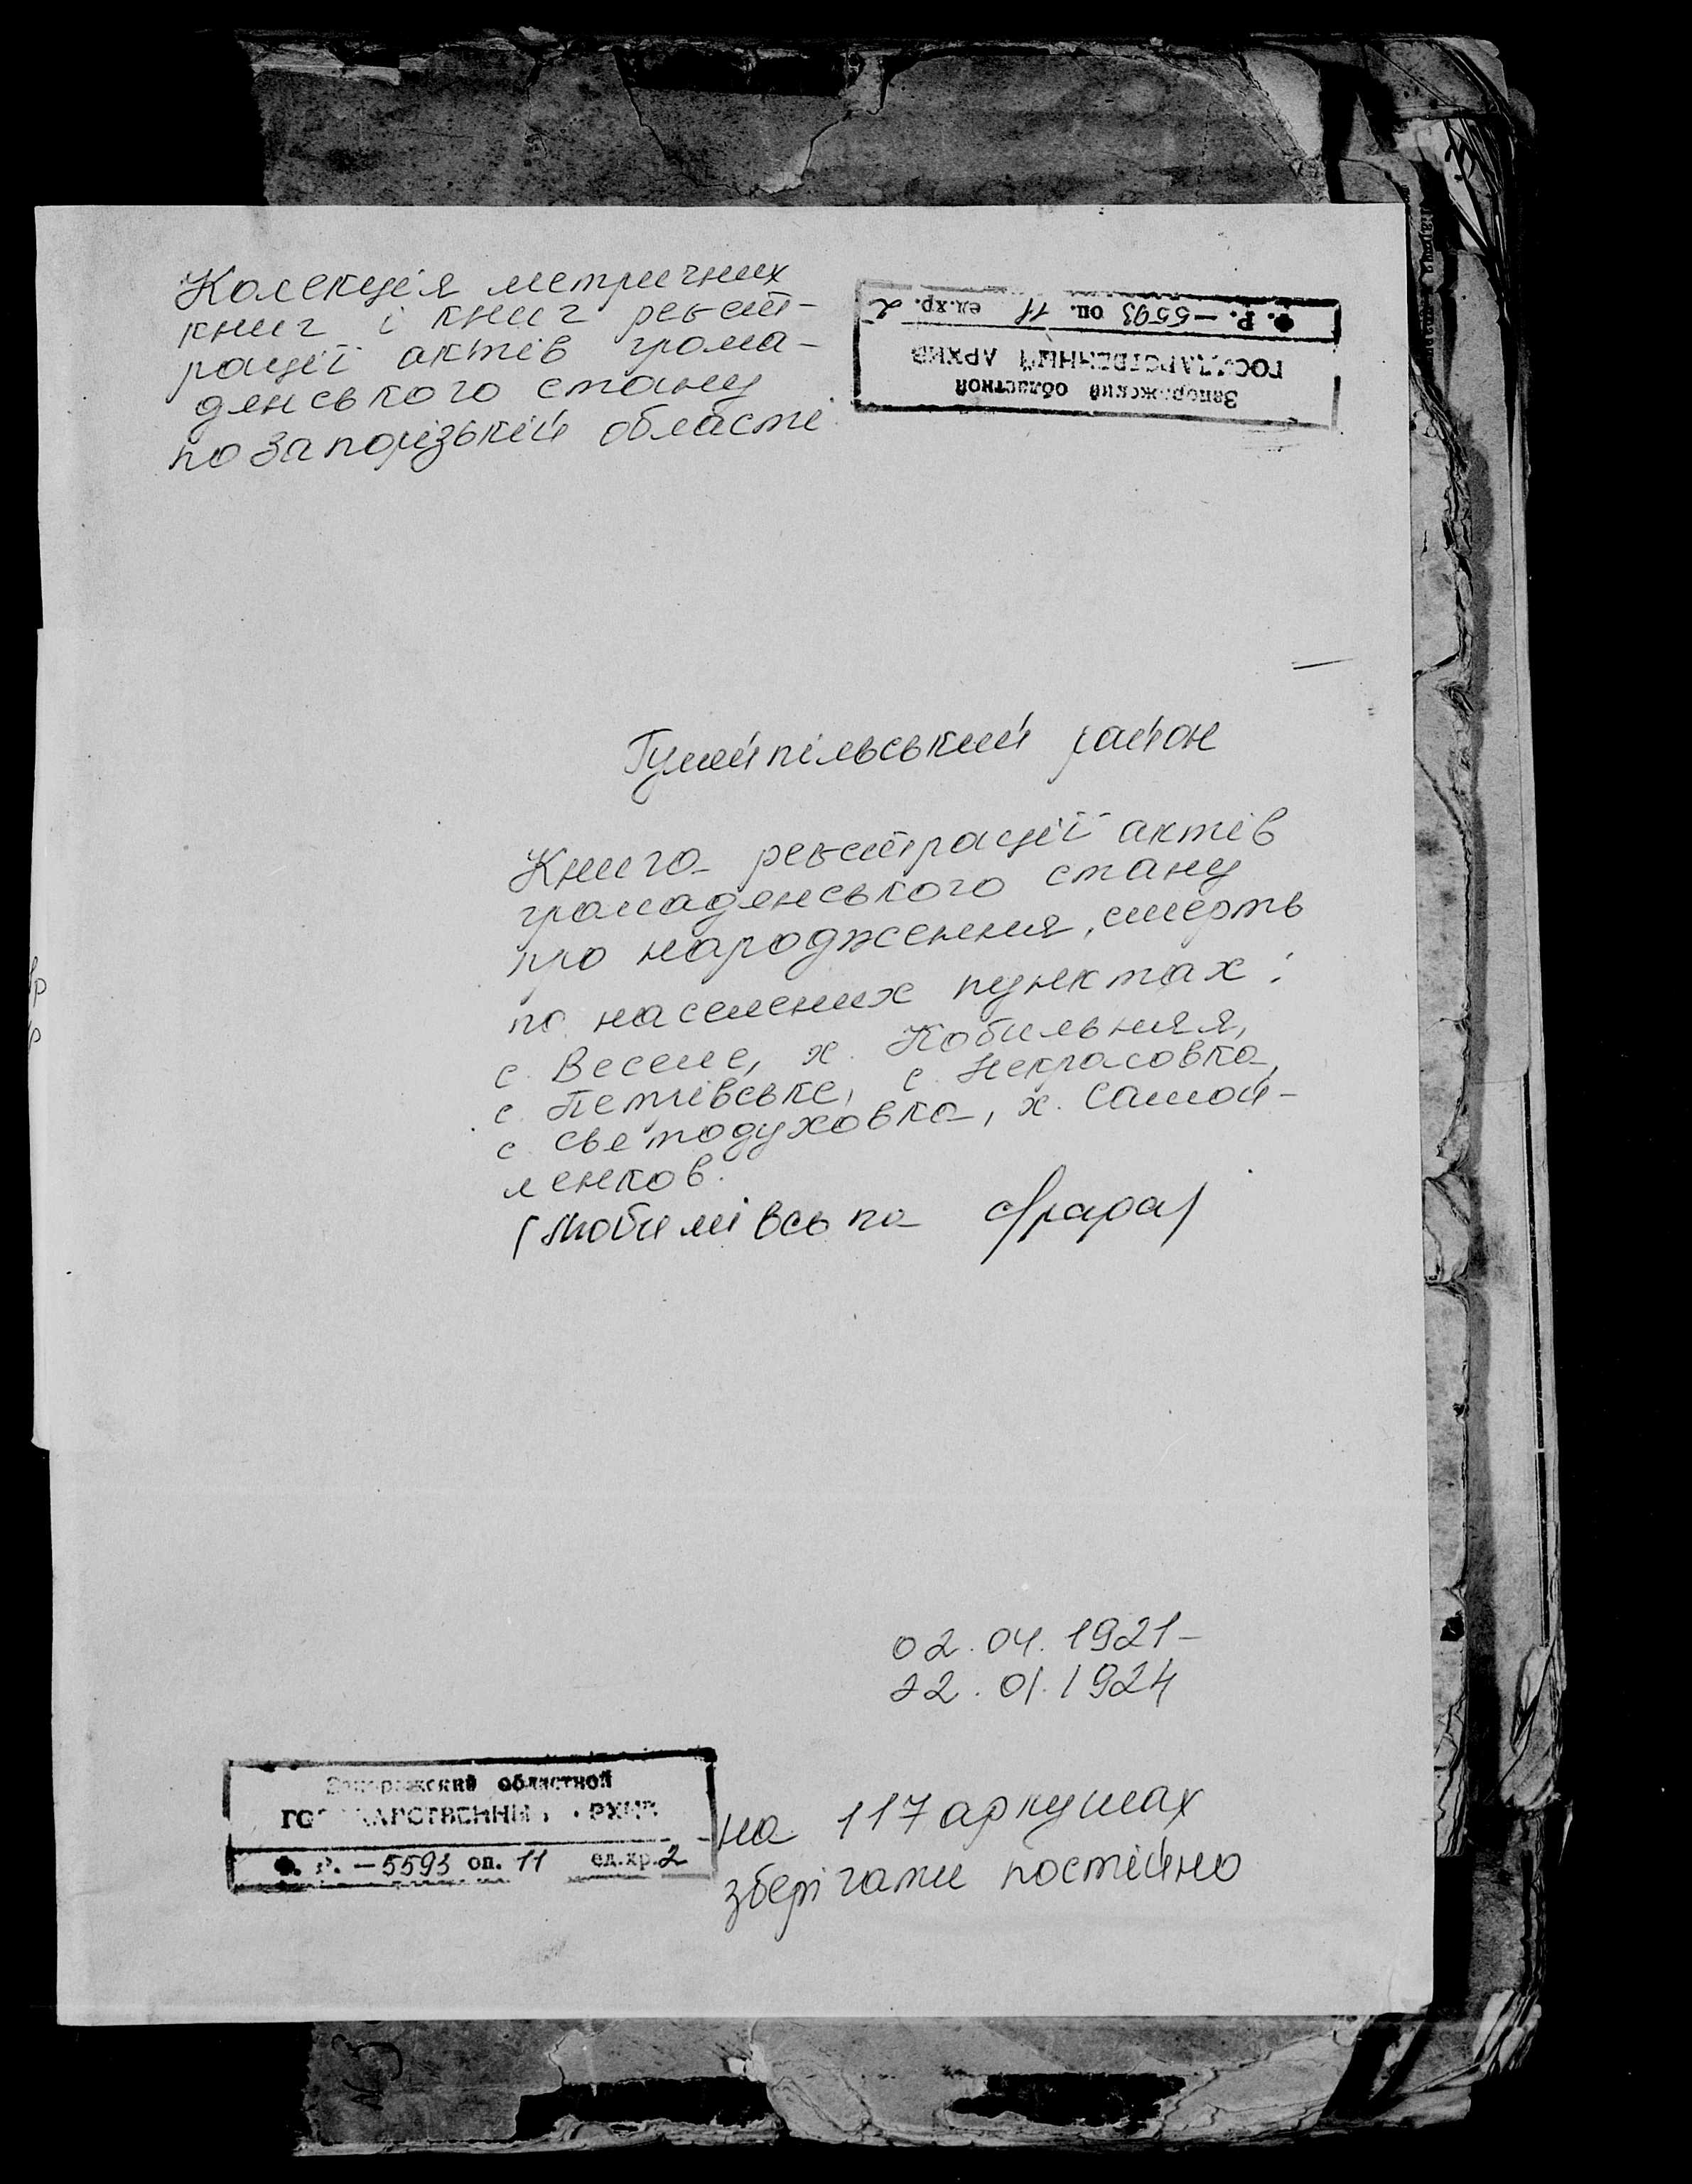 Колекція метричних
книг і книг реєст-
рації актів грома-
дянського стану
по Запорізькій області
Запорожский областной
ГОСУДАРСТВЕННЫЙ АРХИВ
Ф. Р. – 5593 оп. 11 ед.хр. 2
Гуляйпільський район
Книга реєстрації актів
громадянського стану
про народження, смерть
по населених пунктах:
с. Веселе, х. Кобильняя,
с. Петрівське, с. Некрасовка,
с. Святодуховка, х. Самой-
ленков.
02.04.1921–
22.01.1924
Запорожский областной
ГОСУДАРСТВЕННЫЙ АРХИВ
Ф. Р. – 5593 оп. 11 ед.хр. 2
на 117 аркушах
зберігати постійно